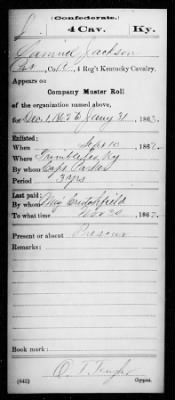 (Confederate.)
4 Cav. Ky.
Samuel Jackson
Co. , 4 Reg't Kentucky Cavalry.
Appears on
Company Master Roll
of the organization named above,
for Dec. 1, 1862 to Jany 31, 1863.
Enlisted:
When Sept. 10, 1862.
Where Trimble Co., Ky
By whom Capt. Parker
Period 3 yrs
Last paid:
By whom Maj Crutchfield
To what time Nov 30, 186
Present or absent Present
Remarks:
Book mark:
(642) Copyist.